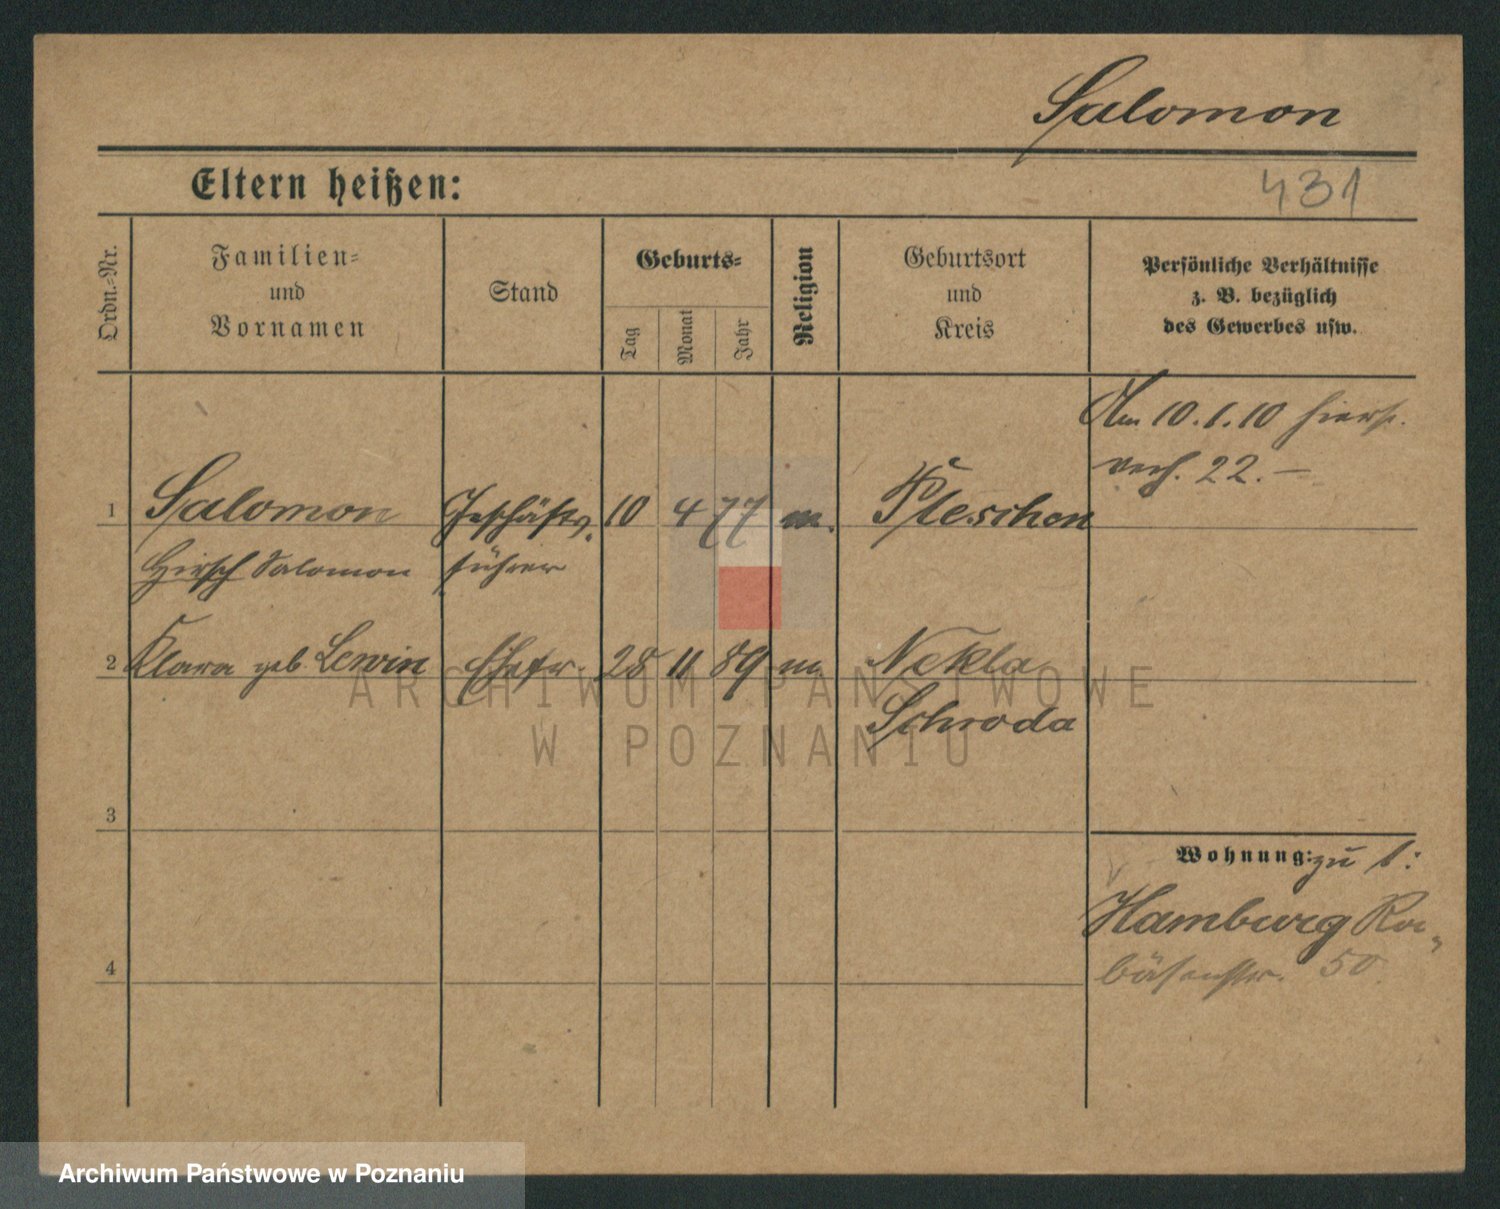 Salomon
Eltern heißen:
431
Ordn.-Nr.
Familien-
und
Vornamen
Stand
Geburts-
Tag
Monat
Jahr
Religion
Geburtsort
und
Kreis
Persönliche Verhältnisse
z. B. bezüglich
des Gewerbes usw.
Am 10.1.10 hiers.
verh. 22.—
1 Salomon Geschäfts- 10 4 77 m. Pleschen
Hirsch Salomon führer
2 Klara geb. Lewin Ehefr. 28 11 89 m Nekla
Schroda
ARCHIWUM PAŃSTWOWE
W POZNANIU
3
Wohnung: zu 1:
Hamburg Ra-
boisenstr. 50
4
Archiwum Państwowe w Poznaniu